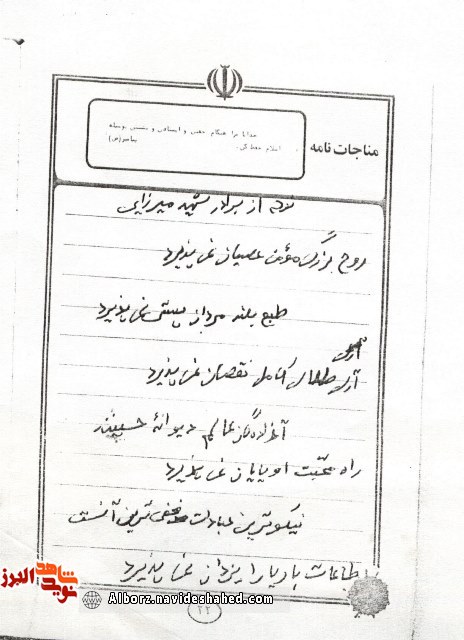 مناجات نامه
خدایا مرا هنگام خفتن و ایستادن و نشستن بوسیله
اسلام حفظ کن.
پیامبر(ص)
نوحه از برادر شهید میرزایی
روح بزرگ مؤمن عصیان نمی پذیرد
طبع بلند مردان پستی نمی پذیرد
آری طلای کامل نقصان نمی پذیرد
آزادگان عالم دیوانهٔ حسینند
راه محبت او پایان نمی پذیرد
نیکوترین عبادت مخفی ترین آنست
طاعات با ریا را یزدان نمی پذیرد
۲۲
شاهد
نوید
البرز
Alborz.navideshahed.com